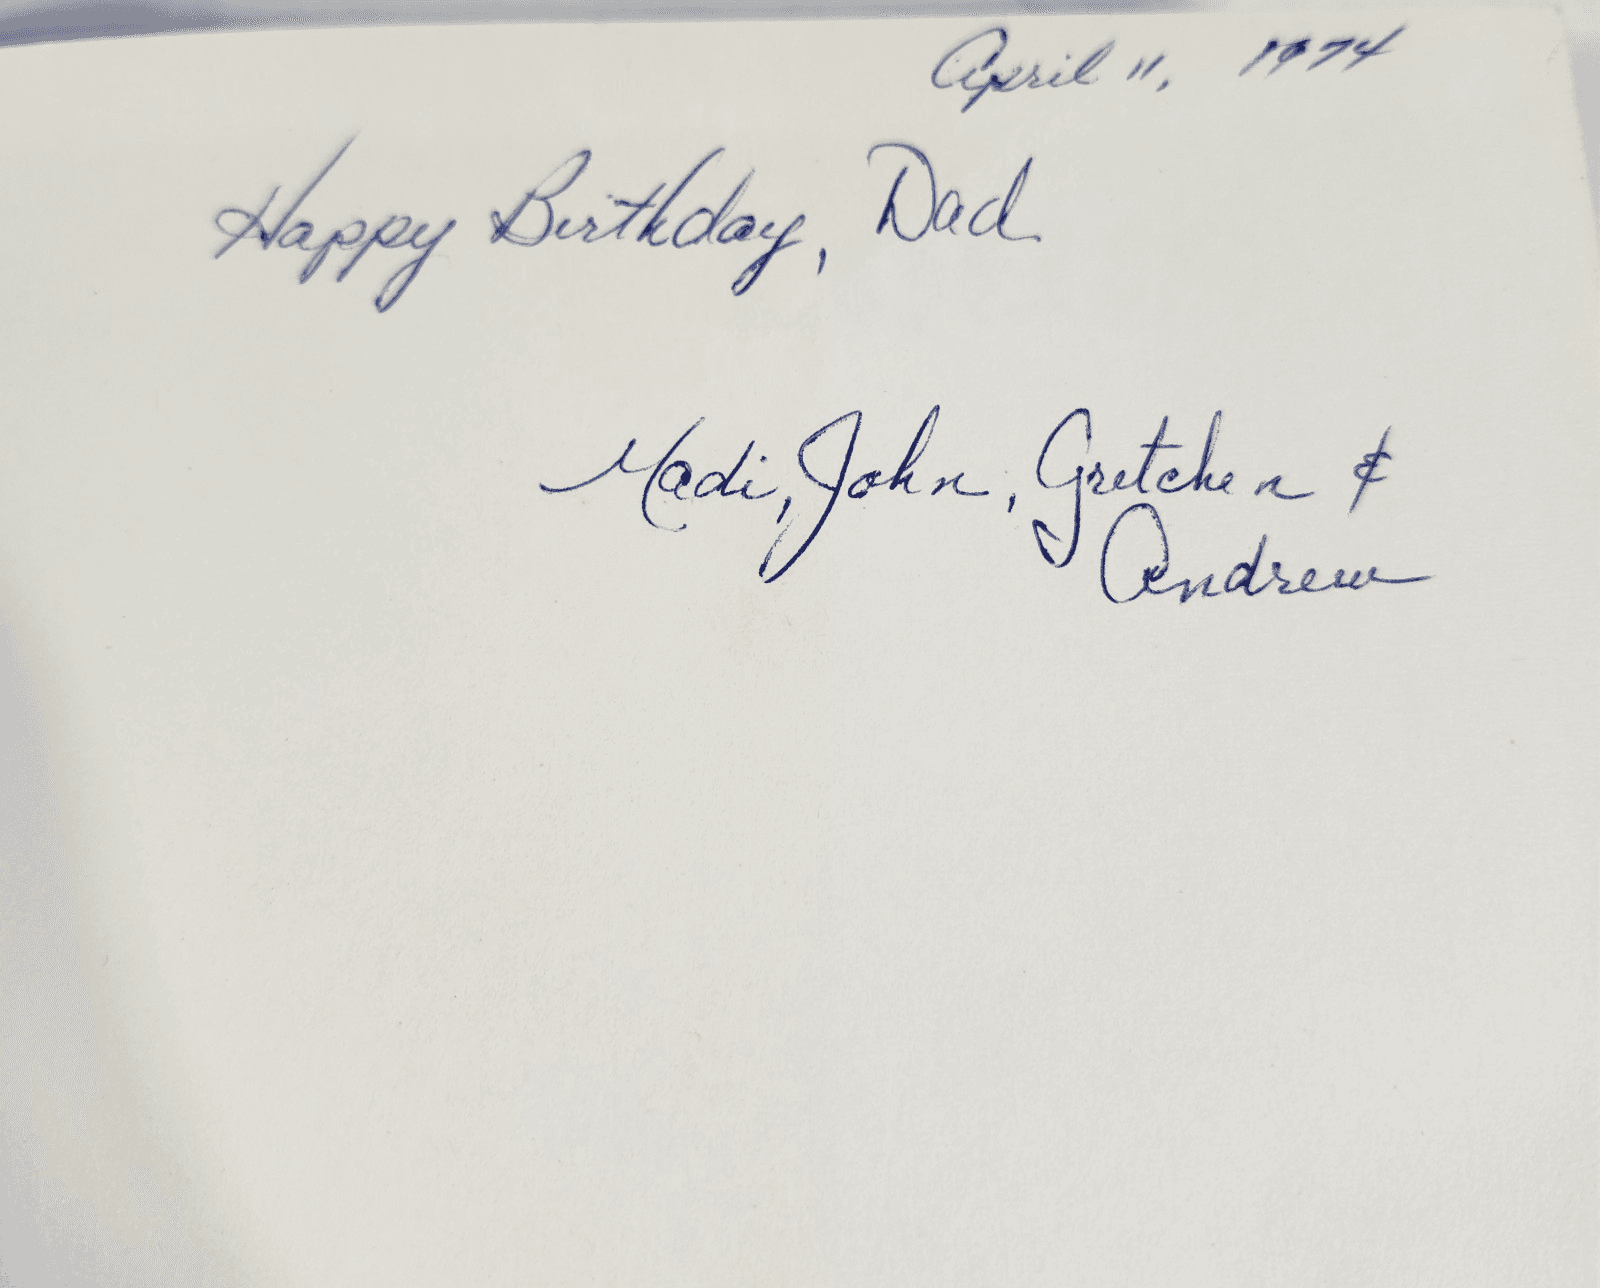 April 11, 1974
Happy Birthday, Dad
Madi, John, Gretchen &
Andrew